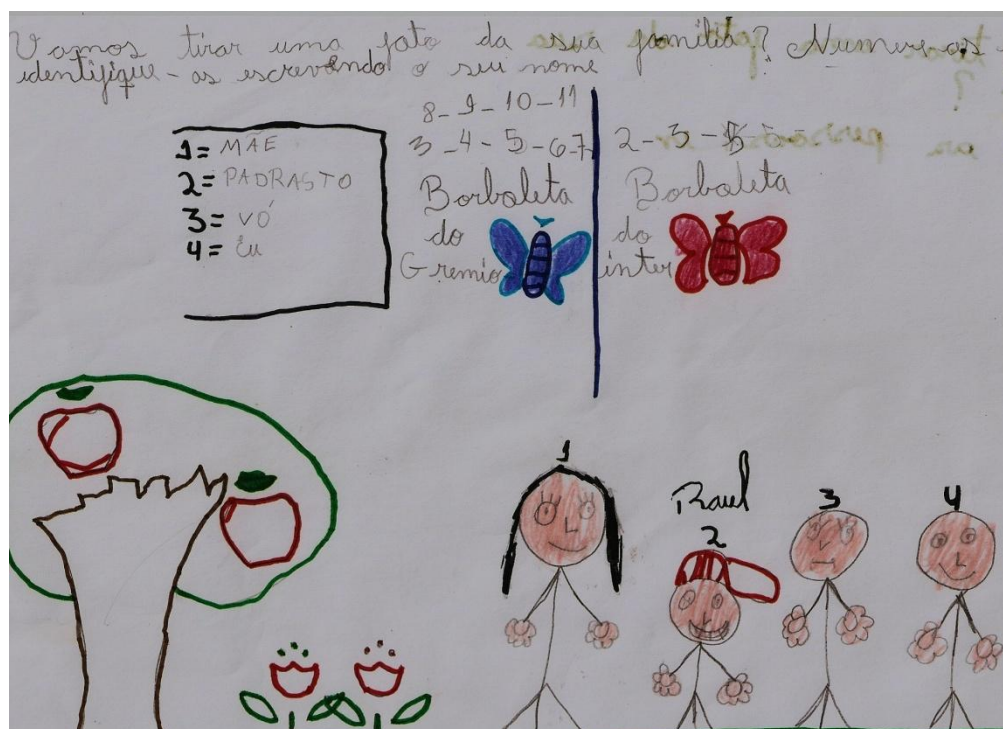 Vamos tirar uma foto da sua família? Numere-as
identifique-as escrevendo o seu nome
1= MÃE
2= PADRASTO
3= VÓ
4= Eu
8-9-10-11
3-4-5-6-7
Borboleta
do
Gremio
2-3-5
Borboleta
do
inter
1
Raul
2
3
4